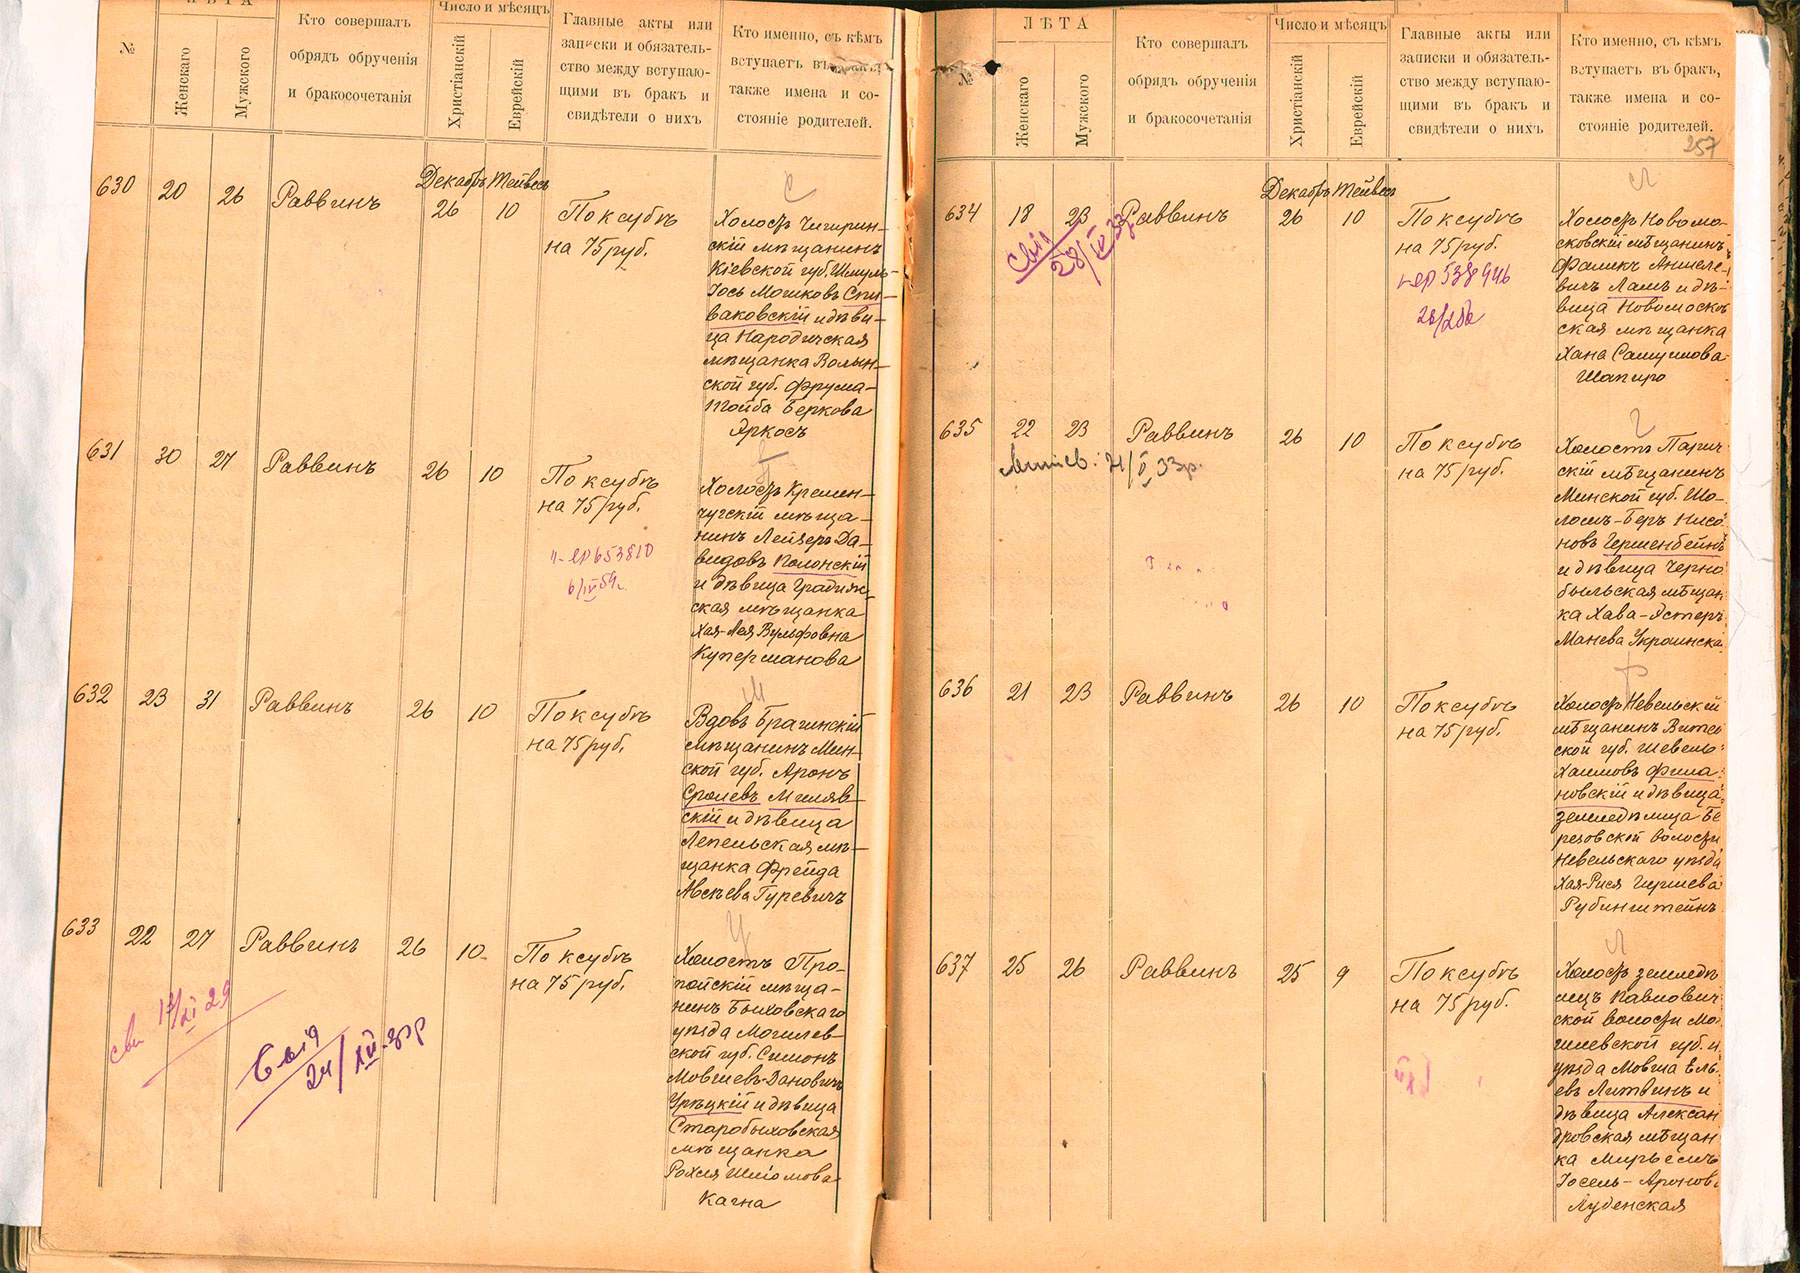 ЛѢТА
№
Женскаго
Мужского
Кто совершалъ
обрядъ обрученія
и бракосочетанія
Число и мѣсяцъ
Христіанскій
Еврейскій
Главные акты или
записки и обязатель-
ство между вступаю-
щими въ бракъ и
свидѣтели о нихъ
Кто именно, съ кѣмъ
вступаетъ въ бракъ,
также имена и со-
стояніе родителей.
Декабрь Тейвесъ
630 20 26 Раввинъ 26 10
По ксубѣ
на 75 руб.
С
Холостъ Чигирин-
скій мѣщанинъ
Кіевской губ. Шмуль-
Іось Мошковъ Спи-
ваковскій и дѣви-
ца Народичская
мѣщанка Волын-
ской губ. Фрума-
Тойба Беркова
Яркосъ
631 30 27 Раввинъ 26 10
По ксубѣ
на 75 руб.
6/IV 59г.
П
Холостъ Кремен-
чугскій мѣща-
нинъ Лейзеръ Да-
видовъ Полонскій
и дѣвица Градиж-
ская мѣщанка
Хая-Лея Вульфовна
Купермановa
632 23 31 Раввинъ 26 10
По ксубѣ
на 75 руб.
М
Вдовъ Брагинскій
мѣщанинъ Мин-
ской губ. Аронъ
Сролевъ Миляв-
скій и дѣвица
Лепельская мѣ-
щанка Фрейда
Авсѣева Гуревичъ
633 22 27 Раввинъ 26 10
По ксубѣ
на 75 руб.
Холостъ Про-
пойскій мѣща-
нинъ Быховскаго
уѣзда Могилев-
ской губ. Симонъ
Мовшевъ-Дановичъ
Урѣцкій и дѣвица
Старобыховская
мѣщанка
Рохля Шліомова
Кагна
29
24/XII
ЛѢТА
№
Женскаго
Мужского
Кто совершалъ
обрядъ обрученія
и бракосочетанія
Число и мѣсяцъ
Христіанскій
Еврейскій
Главные акты или
записки и обязатель-
ство между вступаю-
щими въ бракъ и
свидѣтели о нихъ
Кто именно, съ кѣмъ
вступаетъ въ бракъ,
также имена и со-
стояніе родителей.
257
Декабрь Тейвесъ
634 18 23 Раввинъ 26 10
28/IV 33
По ксубѣ
на 75 руб.
Л
Холостъ Новомо-
сковскій мѣщанинъ
Фаликъ Аншеле-
вичъ Ламъ и дѣ-
вица Новомосков
ская мѣщанка
Хана Самуилова
Шапиро
635 22 23 Раввинъ 26 10
33г.
По ксубѣ
на 75 руб.
Г
Холостъ Парич
скій мѣщанинъ
Минской губ. Шо-
ломъ-Беръ Нисо
новъ Гершенбейнъ
и дѣвица Черно
быльская мѣщан
ка Хава-Эстеръ
Манева Украинска
636 21 23 Раввинъ 26 10
По ксубѣ
на 75 руб.
Ф
Холостъ Невельскій
мѣщанинъ Витеб
ской губ. Шевель
Хаимовъ Фила
новскій и дѣвица
земледѣлица Бе
резовской волости
Невельскаго уѣзда
Хая-Рися Гиршева
Рубинштейнъ
637 25 26 Раввинъ 25 9
По ксубѣ
на 75 руб.
Л
Холостъ земледѣ
лецъ Павлович
ской волости Мо
гилевской губ. и
уѣзда Мовша Ель
евъ Литвинъ и
дѣвица Алексан
дровская мѣщан
ка Мирьемъ
Іосель-Аронов
Луденская